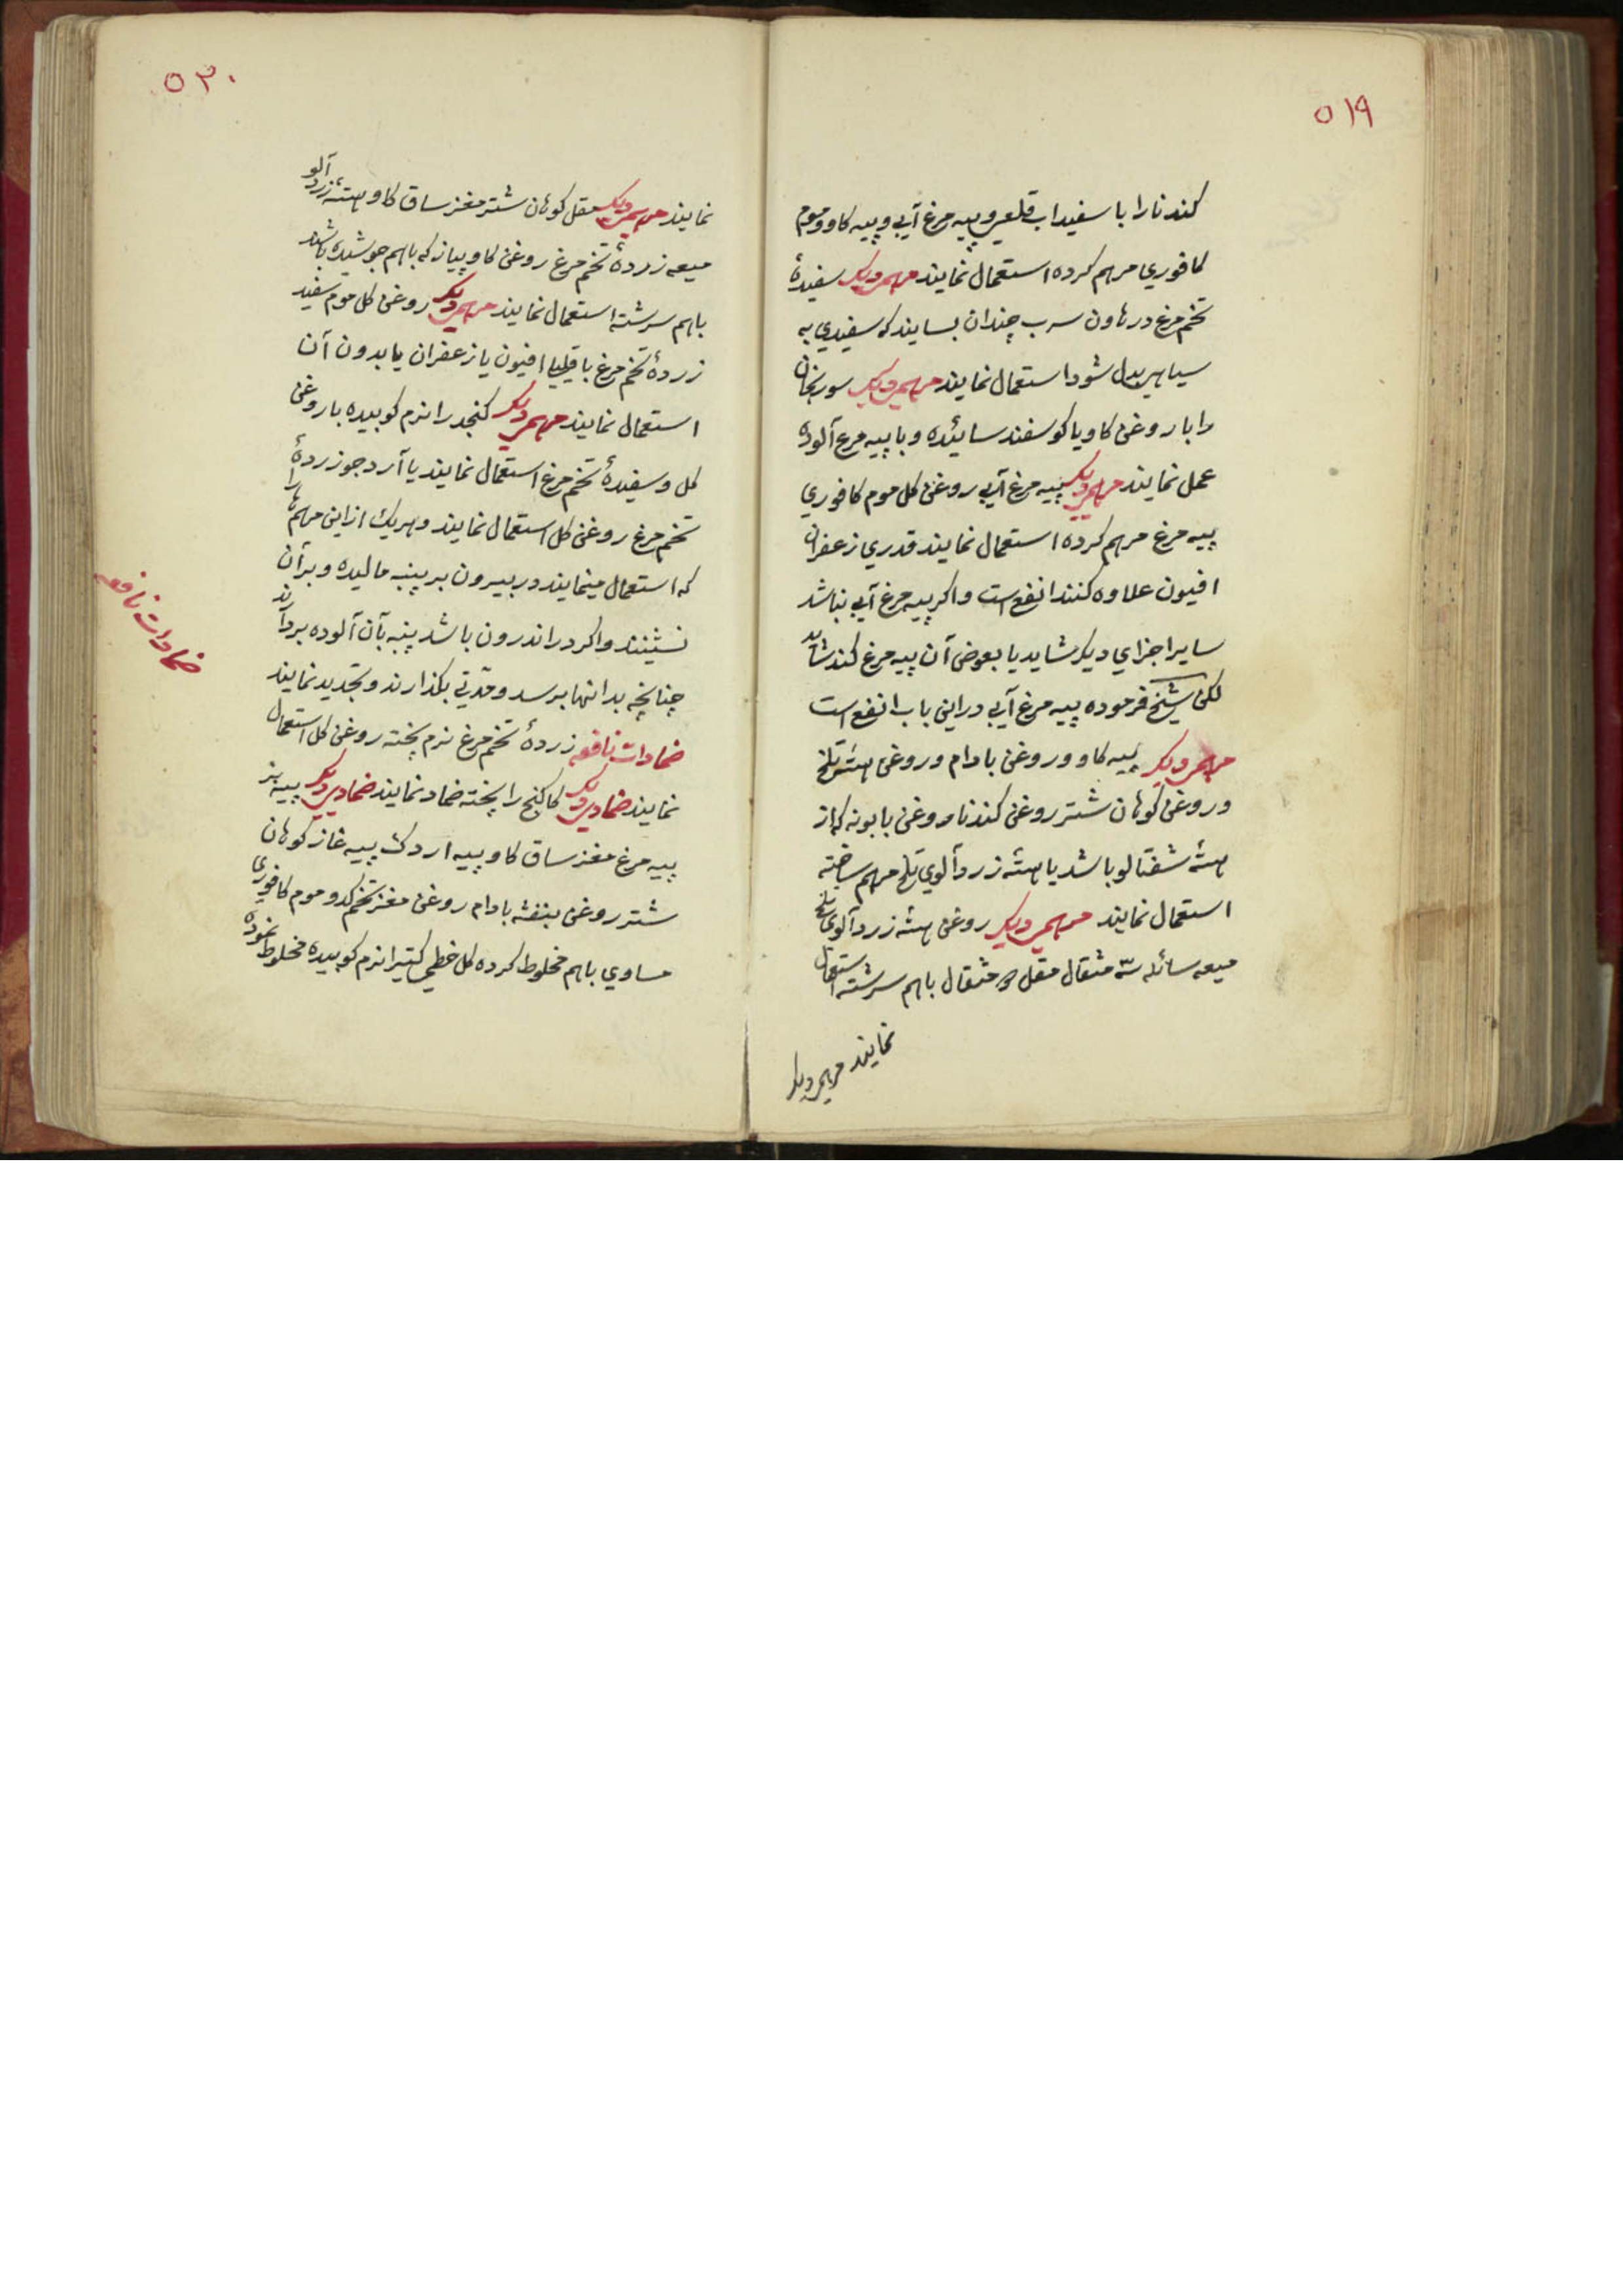 ۵۱۹
کندنا را با سفیداب قلعی و پیه مرغ آبی و پیه کاو و موم
کافوري مرهم کرده استعمال نمایند مرهم دیکر سفیدهٔ
تخم مرغ در هاون سرب چندان بسایند که سفیدي به
سیاهی بدل شود استعمال نمایند مرهم دیکر سورنجان
را با روغن کاو یا کوسفند سائیده و با پیه مرغ آلوده
عمل نمایند مرهم دیکر پیه مرغ آبی روغن کل موم کافوري
پیه مرغ مرهم کرده استعمال نمایند قدري زعفران
افیون علاوه کنند انفع است و اکر پیه مرغ آبی نباشد
سایر اجزاي دیکر شاید یا بعوض آن پیه مرغ کنند شاید
لکن شیخ فرموده پیه مرغ آبی در این باب انفع است
مرهم دیکر پیه کاو و روغن بادام و روغن هستهٔ تلخ
و روغن کوهان شتر روغن کندنا روغن بابونه که از
هستهٔ شفتالو باشد یا هستهٔ زردآلوي تلخ مرهم ساخته
استعمال نمایند مرهم دیکر روغن هستهٔ زردآلوي تلخ
میعه سائله مثقال مقل مثقال باهم سرشته استعمال
نمایند مرهم دیکر
۵۲۰
نمایند مرهم دیکر مقل کوهان شتر مغز ساق کاو هستهٔ زردآلو
میعه زردهٔ تخم مرغ روغن کاو پیاز که باهم جوشیده باشند
باهم سرشته استعمال نمایند مرهم دیکر روغن کل موم سفید
زردهٔ تخم مرغ با قلیلی افیون یا زعفران یا بدون آن
استعمال نمایند مرهم دیکر کنجد را نرم کوبیده با روغن
کل و سفیدهٔ تخم مرغ استعمال نمایند یا آرد جو زردهٔ
تخم مرغ روغن کل استعمال نمایند و هریک از این مرهمها را
که استعمال مینمایند در بیرون بر پنبه مالیده و بر آن
نشینند و اکر در اندرون باشد پنبه بآن آلوده بردارند
چنانچه بدانتها برسد و مدّتي بکذارند و تجدید نمایند
ضمادات نافعه زردهٔ تخم مرغ نرم پخته روغن کل استعمال
نمایند ضماد دیکر کاکنج را پخته ضماد نمایند ضماد دیکر پیه بز
پیه مرغ مغز ساق کاو پیه اردک پیه غاز کوهان
شتر روغن بنفشه بادام روغن مغز تخم کدو موم کافوري
مساوي باهم مخلوط کرده کل خطمي کتیرا نرم کوبیده مخلوط نموده
ضمادات نافعه